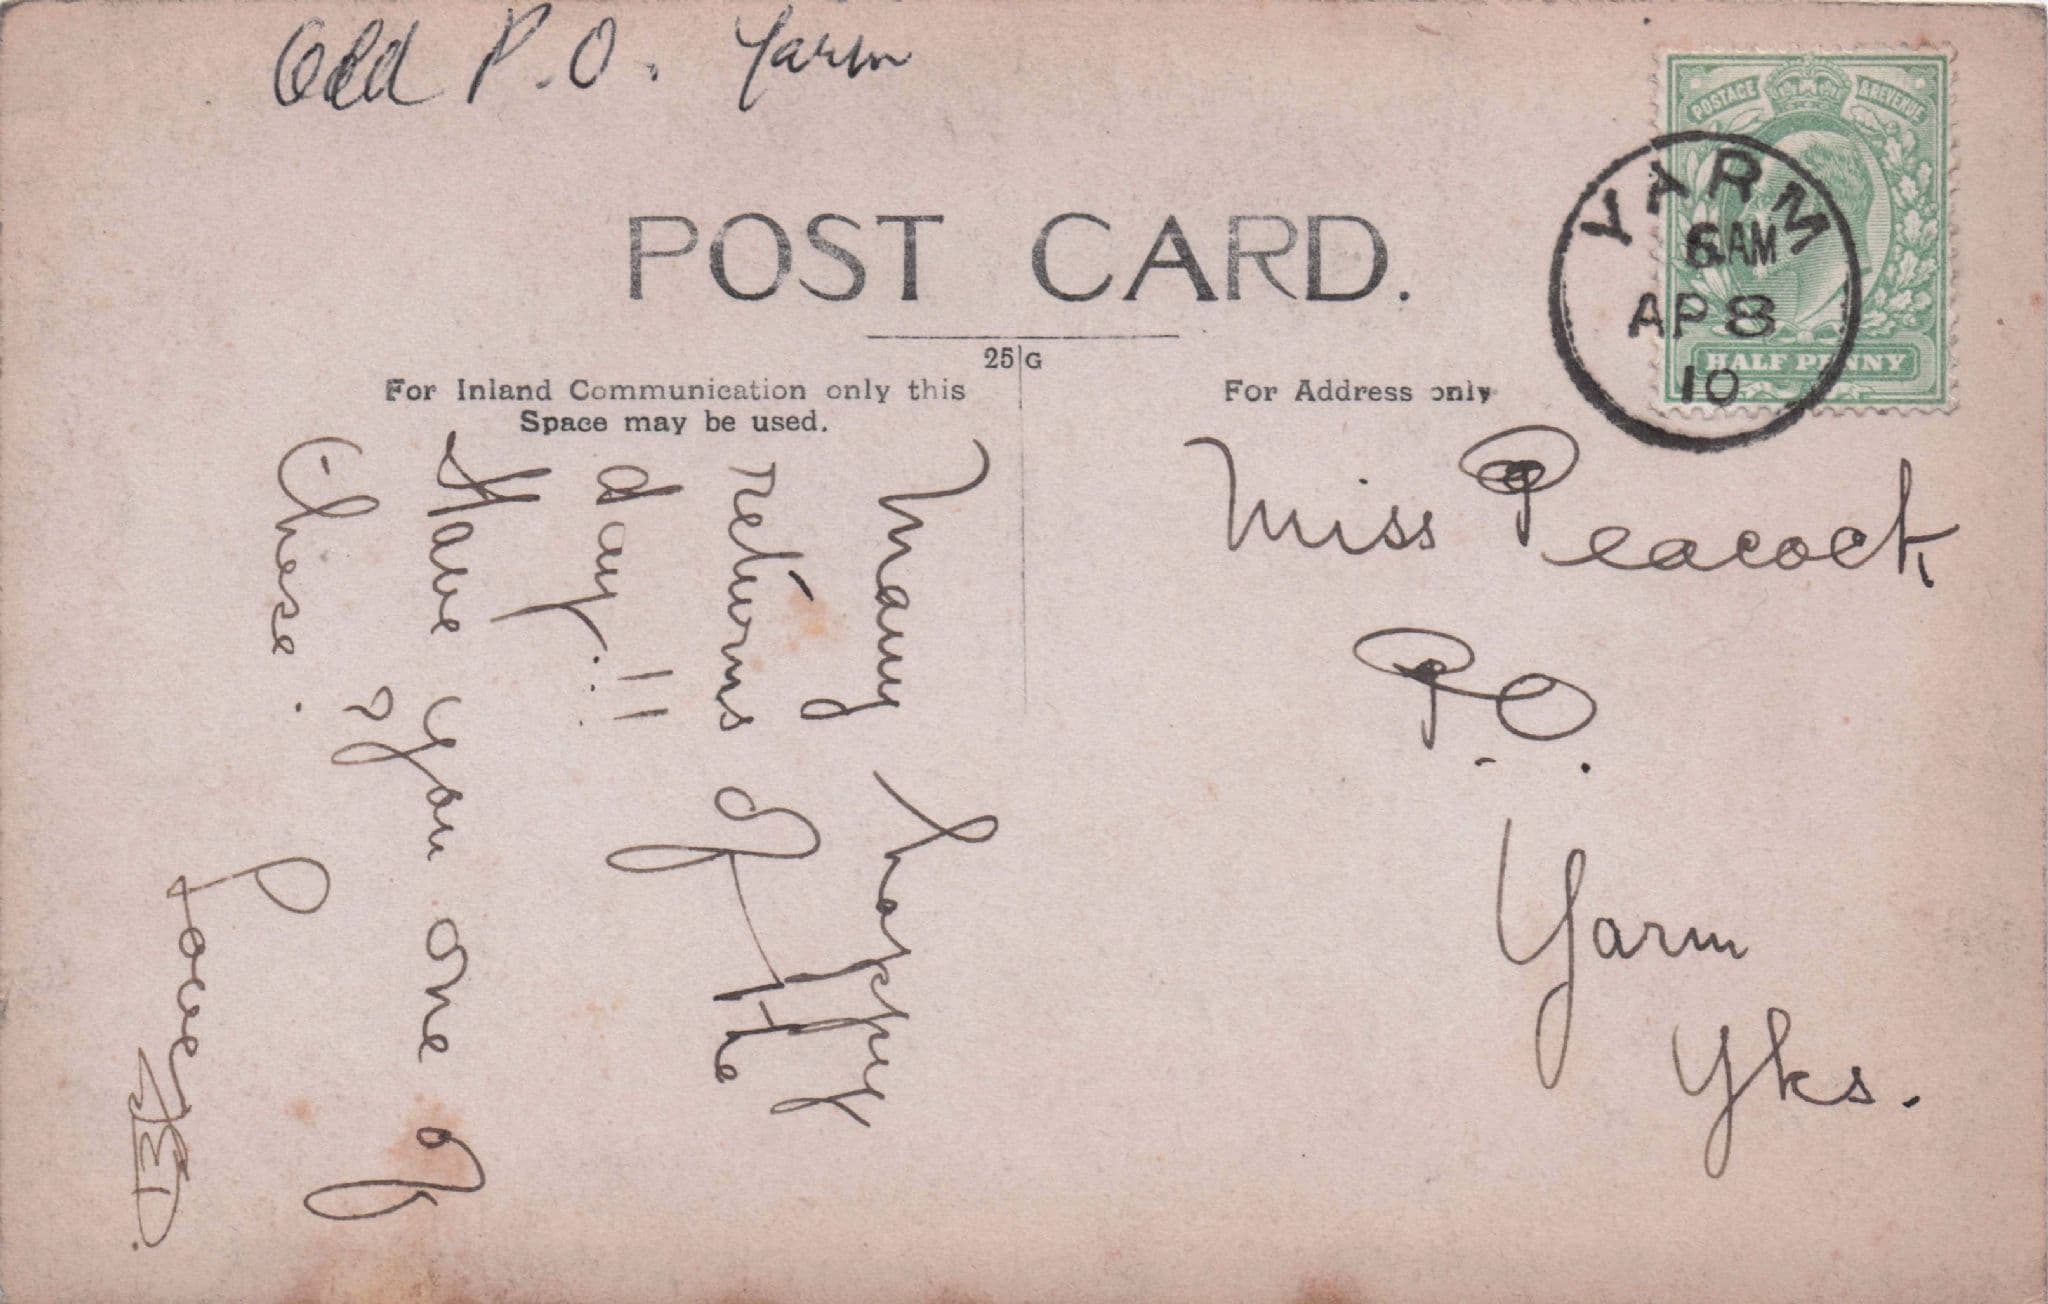 Old P.O. Yarm
POSTAGE & REVENUE
YARM
6 AM
AP 8
10
HALF PENNY
POST CARD.
25 G
For Inland Communication only this
Space may be used.
For Address only
Many happy
returns of the
day.!!
Have you one of
these. ?
Love
Miss Peacock
P.O.
Yarm
Yks.